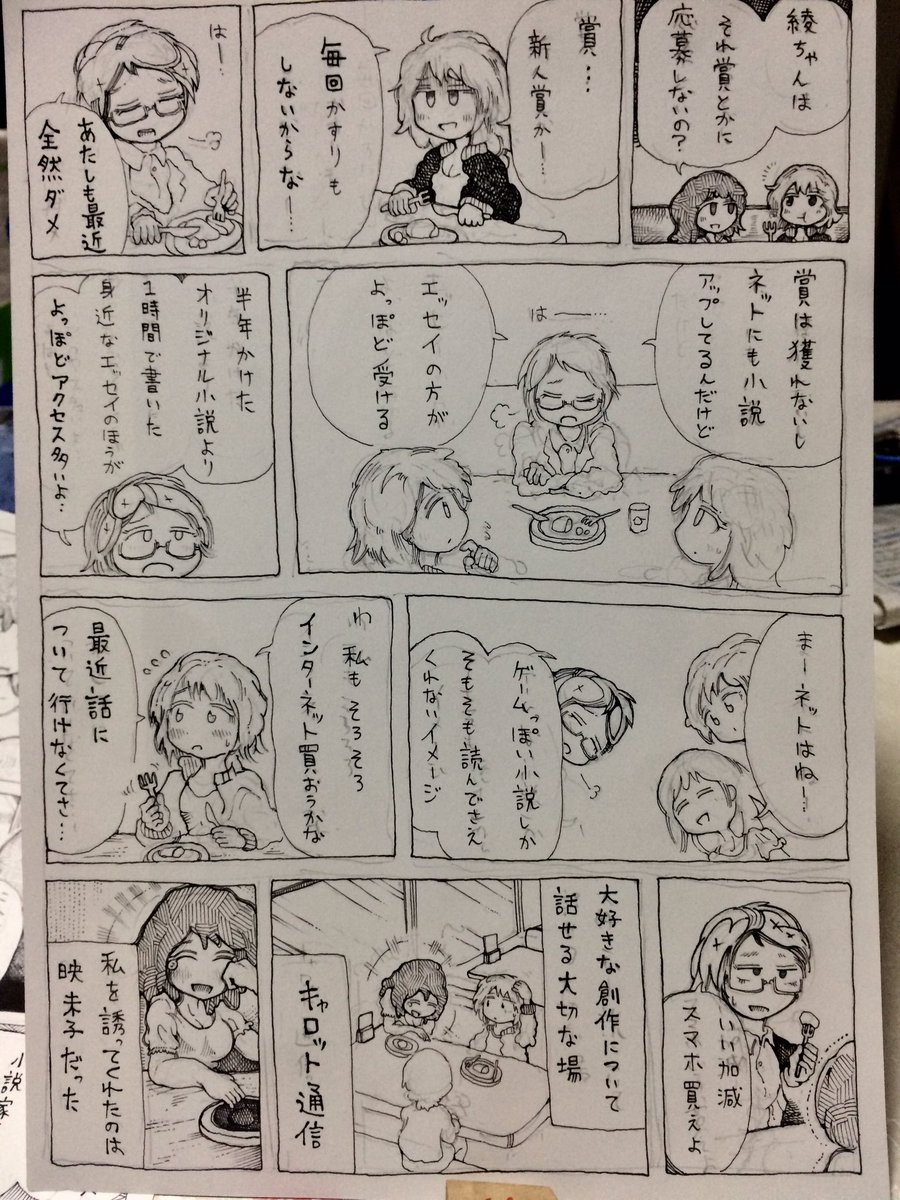 綾ちゃんは
それ賞とかに
応募しないの？
賞…
新人賞かー…
毎回かすりも
しないからなー…
はー…
あたしも最近
全然ダメ
賞は獲れないし
ネットにも小説
アップしてるんだけど
はー
エッセイの方が
よっぽど受ける
半年かけた
オリジナル小説より
1時間で書いた
身近なエッセイのほうが
よっぽどアクセス多いよ…
まーネットはねー…
ゲームっぽい小説しか
そもそも読んでさえ
くれないイメージ
わ 私も そろそろ
インターネット買おうかな
最近話に
ついて行けなくてさ…
いい加減
スマホ買えよ
大好きな創作について
話せる大切な場
キャロット通信
私を誘ってくれたのは
映未子だった
小説家